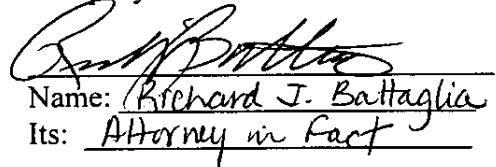 Name: Richard J. Battaglia
Its: Attorney in Fact